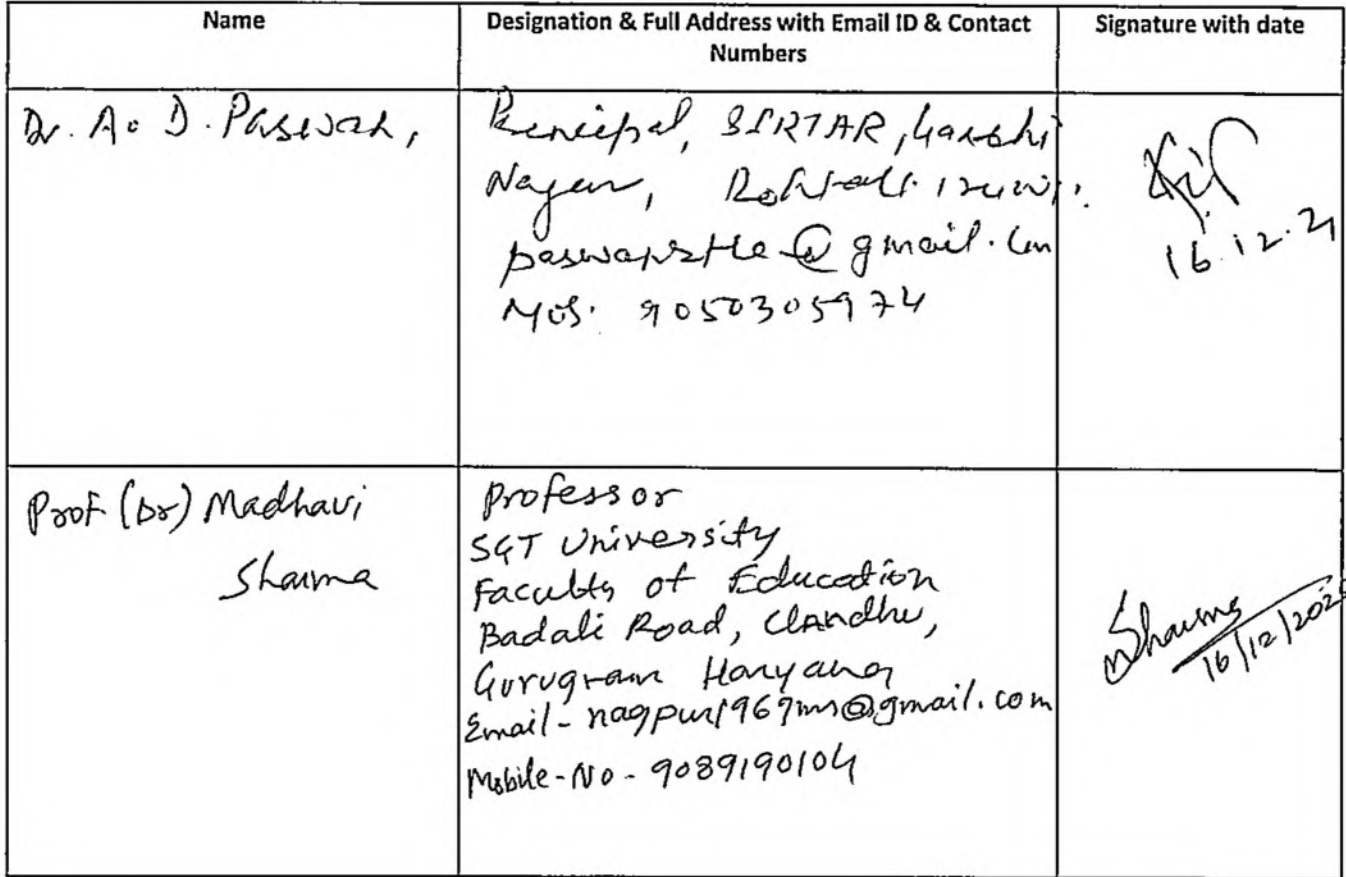 Name
Designation & Full Address with Email ID & Contact
Numbers
Signature with date
Dr. A. D. Paswan,
Principal, SIRTAR, Gandhi
Nagar, Rohtak
@gmail.com
Mob. 9050305974
16.12.21
Prof (Dr) Madhavi
Sharma
Professor
SGT University
Faculty of Education
Badali Road, Chandhu,
Gurugram Haryana
Email - nagpur1969ms@gmail.com
Mobile-No - 9089190104
Sharma
16/12/202